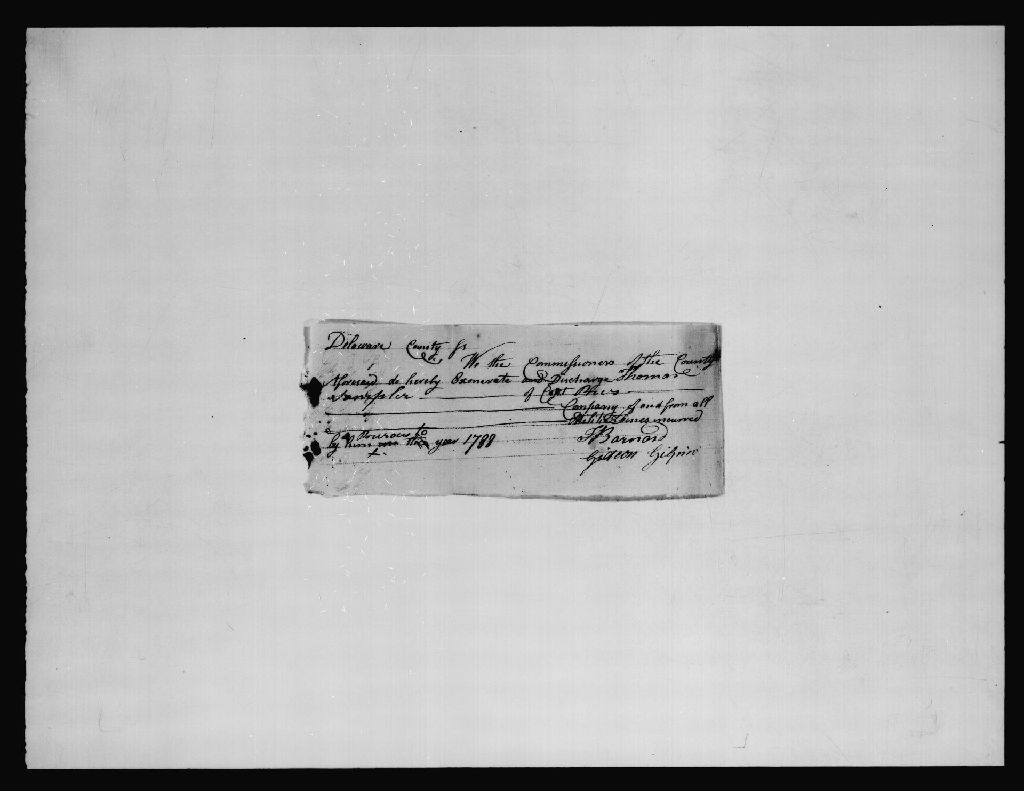 Delaware County ss
We the Commissioners of the County
Aforesaid do hereby Exonerate and Discharge Thomas
of Capt
Company of and from all
Militia Fines incurred
by him year 1788
T Barnard
Gideon Gilpin